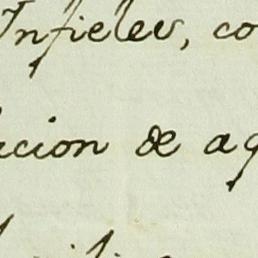 Infieles, co
cion de aq